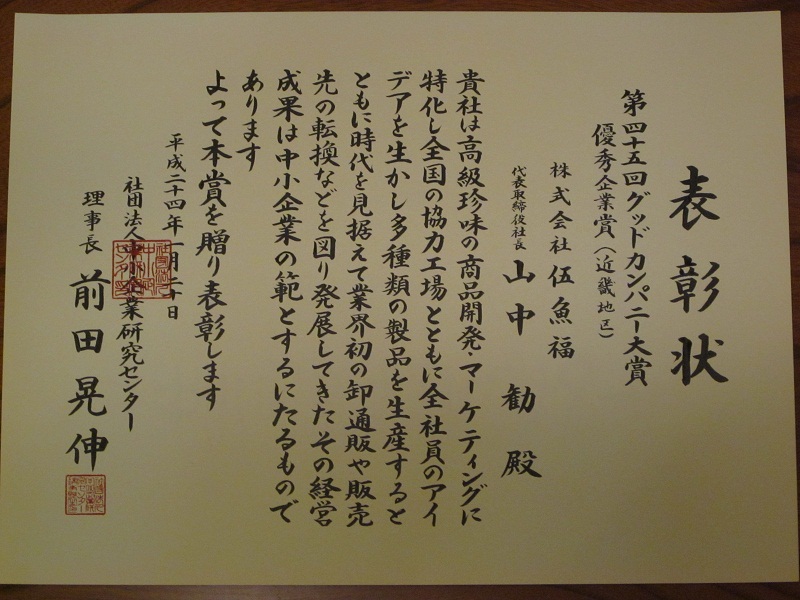 表彰状
第四十五回グッドカンパニー大賞
優秀企業賞（近畿地区）
株式会社 伍魚福
代表取締役社長 山中 勧 殿
貴社は高級珍味の商品開発・マーケティングに
特化し全国の協力工場とともに全社員のアイ
デアを生かし多種類の製品を生産すると
ともに時代を見据えて業界初の卸通販や販売
先の転換などを図り発展してきたその経営
成果は中小企業の範とするにたるもので
あります
よって本賞を贈り表彰します
平成二十四年一月二十日
社団法人中小企業研究センター
理事長 前田晃伸